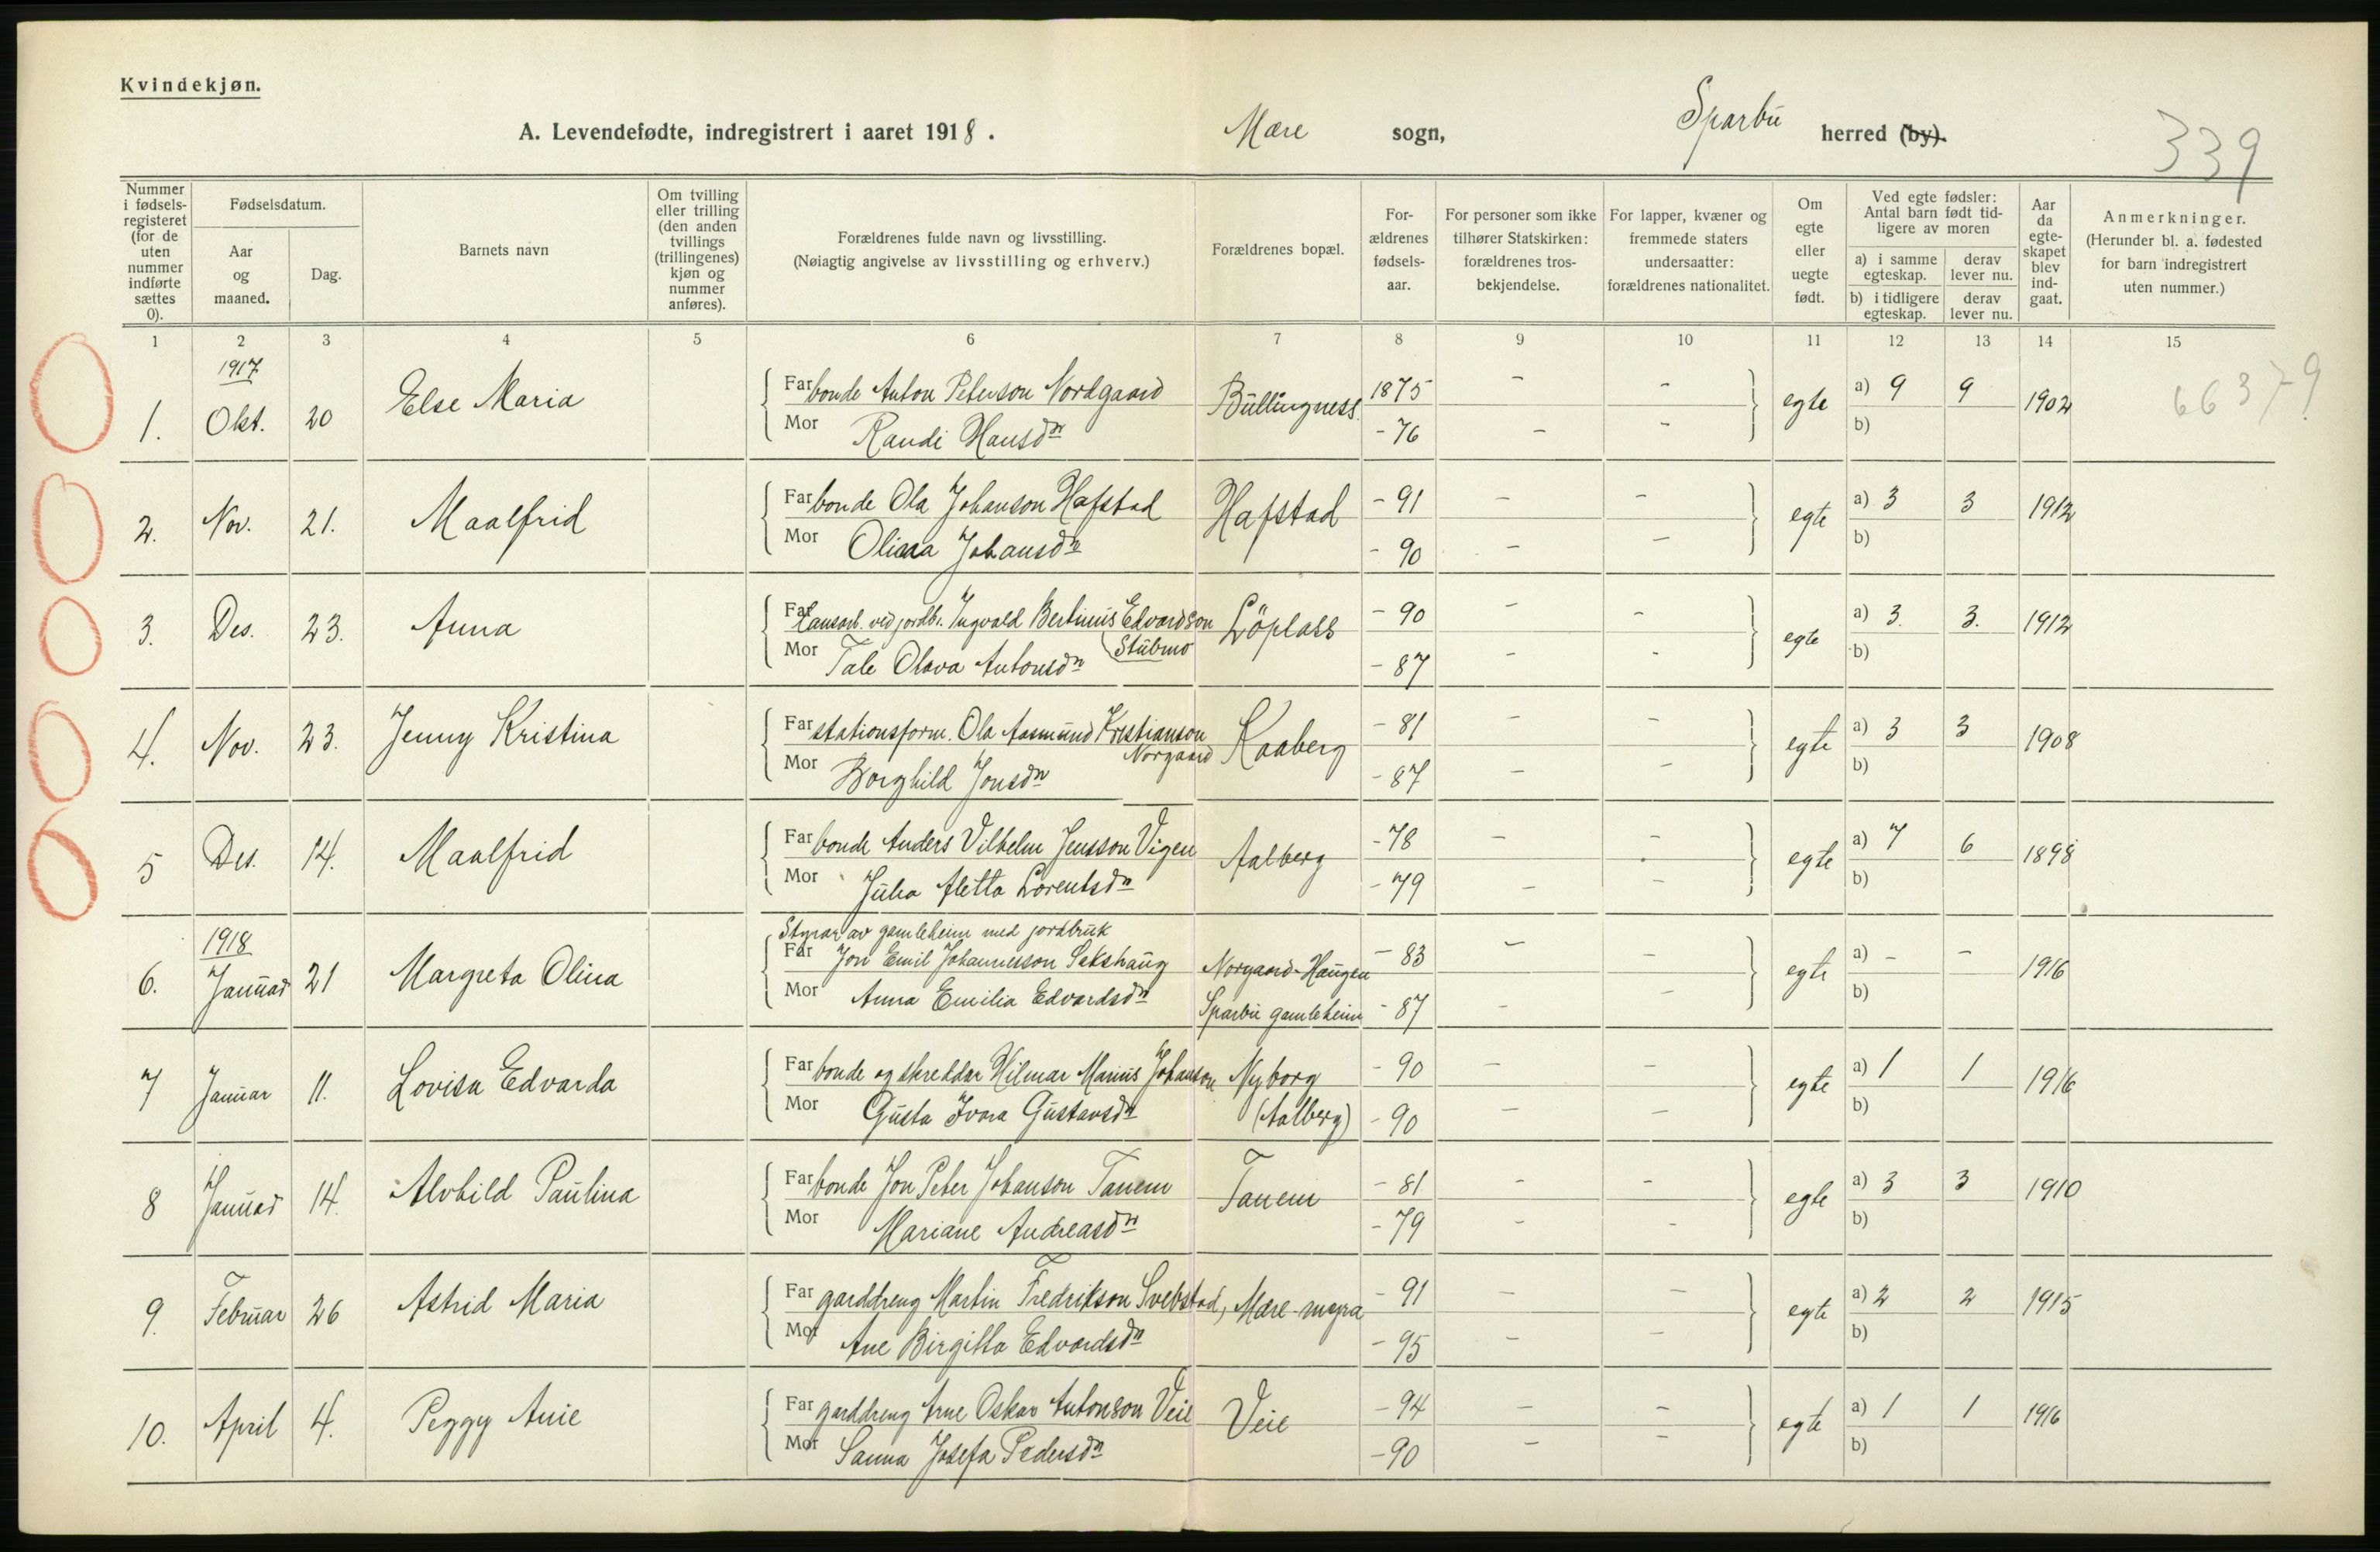 Kvindekjøn.
A. Levendefødte, indregistrert i aaret 1918. Mære sogn, Sparbu herred (by).
339
Nummer i fødsels-registeret (for de uten nummer indførte sættes 0).
Fødselsdatum.
Aar og maaned.
Dag.
Barnets navn
Om tvilling eller trilling (den anden tvillings (trillingenes) kjøn og nummer anføres).
Forældrenes fulde navn og livsstilling.
(Nøiagtig angivelse av livsstilling og erhverv.)
Forældrenes bopæl.
For-ældrenes fødsels-aar.
For personer som ikke tilhører Statskirken: forældrenes tros-bekjendelse.
For lapper, kvæner og fremmede staters undersaatter: forældrenes nationalitet.
Om egte eller uegte født.
Ved egte fødsler: Antal barn født tid-ligere av moren
a) i samme egteskap.
derav lever nu.
b) i tidligere egteskap.
derav lever nu.
Aar da egte-skapet blev ind-gaat.
Anmerkninger.
(Herunder bl. a. fødested for barn indregistrert uten nummer.)
1 2 3 4 5 6 7 8 9 10 11 12 13 14 15
1917
1. Okt. 20 Else Maria Far bonde Anton Peterson Nordgaard Büllingness. 1875 - - egte a) 9 9 1902 66379
Mor Randi Hansdn - 76 - - b)
2. Nov. 21. Maalfrid Far bonde Ola Johanson Hafstad Hafstad - 91 - - egte a) 3 3 1912
Mor Olina Johansdn - 90 - - b)
3. Des. 23. Anna Far lausarb. ved jordbr. Ingvald Bertinus Edvardson Löplass - 90 - - egte a) 3. 3. 1912
Stubmo
Mor Tale Olava Antonsdn - 87 - - b)
4. Nov. 23. Jenny Kristina Far stationsform. Ola Aasmund Kristianson Kaaberg - 81 - - egte a) 3 3 1908
Norgaard
Mor Borghild Jonsdn - 87 - - b)
5 Des. 14. Maalfrid Far bonde Anders Vilhelm Jensson Vigen Aalberg - 78 - - egte a) 7 6 1898
Mor Julia Aletta Lorentsdn - 79 - - b)
1918
Styrar av gamleheim med jordbruk
6. Januar 21 Margreta Olina Far Jon Emil Johannesson Sakshaug Norgaard-Haugen - 83 - - egte a) - - 1916
Mor Anna Emilia Edvardsdn Sparbu gamleheim - 87 - - b)
7 Januar 11. Lovisa Edvarda Far bonde og skreddar Hilmar Marius Johanson Nyborg - 90 - - egte a) 1 1 1916
Mor Gusta Ivara Gustavsdn (Aalberg) - 90 - - b)
8 Januar 14. Alvhild Paulina Far bonde Jon Peter Johanson Tanem Tanem - 81 - - egte a) 3 3 1910
Mor Mariane Andreasdn - 79 - - b)
9. Februar 26 Astrid Maria Far garddreng Martin Fredrikson Svebstad, Mære-myra - 91 - - egte a) 2 2 1915
Mor Ane Birgitta Edvardsdn - 95 - - b)
10. April 4. Peggy Anie Far garddreng Arne Oskar Antonson Veie Veie - 94 - - egte a) 1 1 1916
Mor Sanna Josefa Pedersdn - 90 - - b)